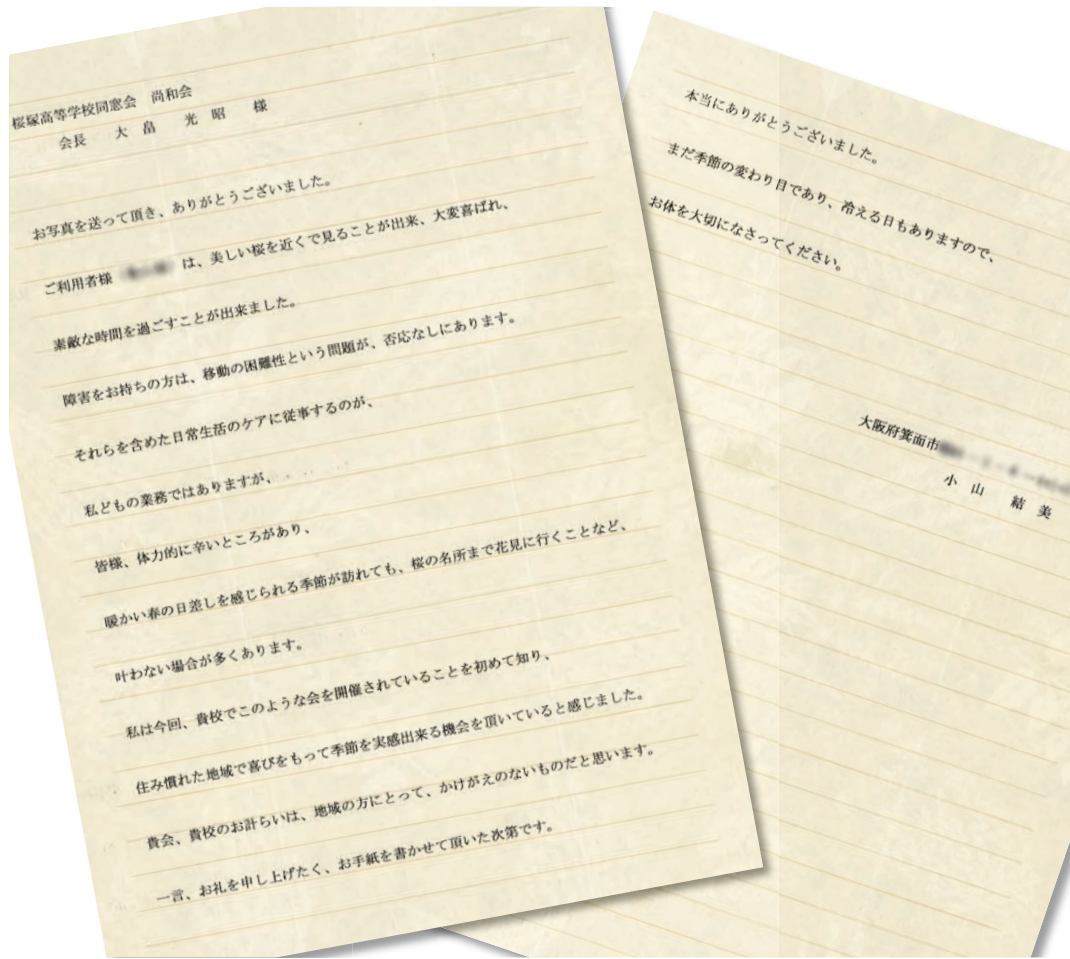 桜塚高等学校同窓会　尚和会
会長　大畠　光昭　様
お写真を送って頂き、ありがとうございました。
ご利用者様　は、美しい桜を近くで見ることが出来、大変喜ばれ、
素敵な時間を過ごすことが出来ました。
障害をお持ちの方は、移動の困難性という問題が、否応なしにあります。
それらを含めた日常生活のケアに従事するのが、
私どもの業務ではありますが、
皆様、体力的に辛いところがあり、
暖かい春の日差しを感じられる季節が訪れても、桜の名所まで花見に行くことなど、
叶わない場合が多くあります。
私は今回、貴校でこのような会を開催されていることを初めて知り、
住み慣れた地域で喜びをもって季節を実感出来る機会を頂いていると感じました。
貴会、貴校のお計らいは、地域の方にとって、かけがえのないものだと思います。
一言、お礼を申し上げたく、お手紙を書かせて頂いた次第です。
本当にありがとうございました。
まだ季節の変わり目であり、冷える日もありますので、
お体を大切になさってください。
大阪府箕面市
小山　結美